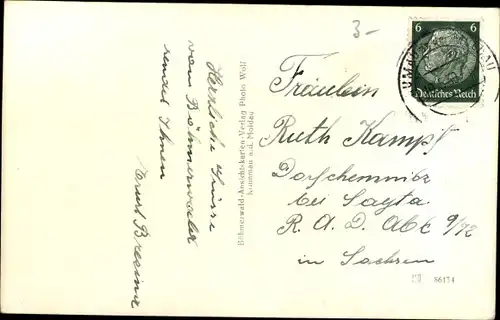 3-
Herzliche Grüsse
vom Böhmerwald
sendet Ihnen
Ernst Bresina
Böhmerwald-Ansichtskarten-Verlag Photo Wolf
Krummau a.d. Moldau
6 6
Deutsches Reich
Fräulein
Ruth Kampf
Dorfchemnitz
bei Sayda
R. A. D. Abt 9/72
in Sachsen
86174